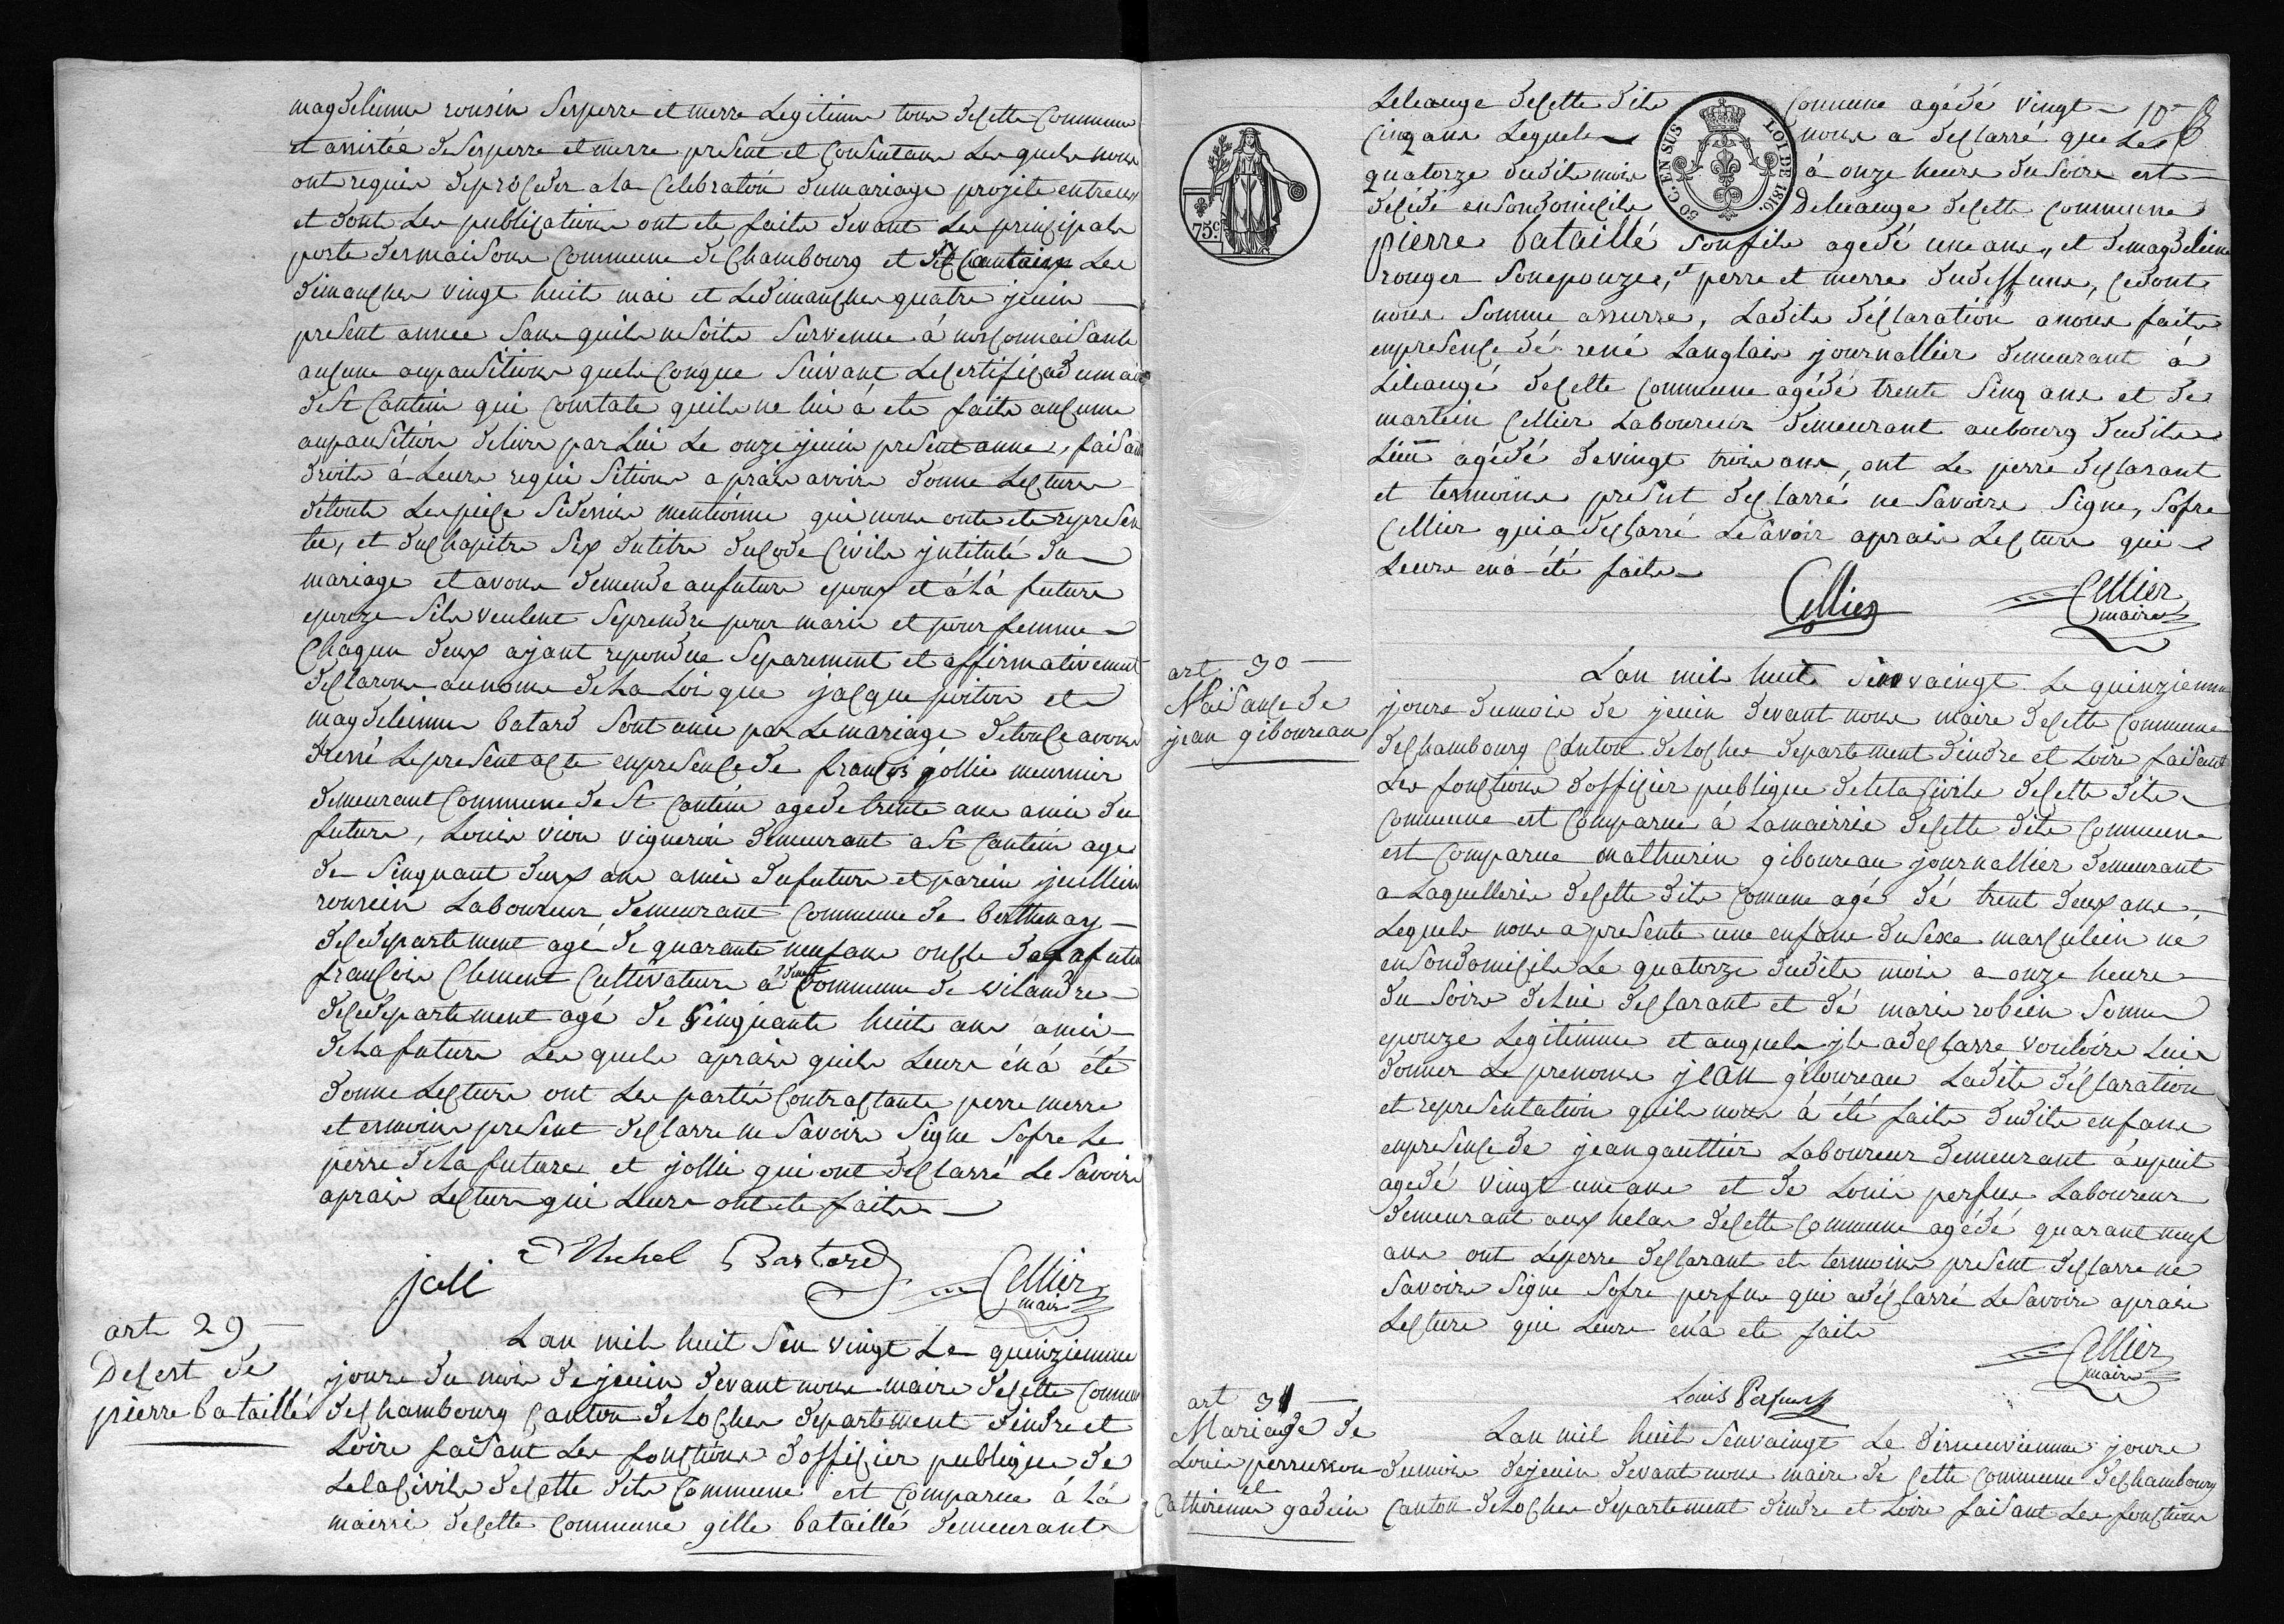 magdelinne rousin ses perre et merre Legitime tous de cette Commune
et assistée de ses perre et merre present et Consentans Les quels nous
ont requis de proceder a la Celebration du mariage projete entreux
et dont Les publications ont ete faite devant Les principale
porte des maisons Commune de Chambourg et St Cantain Les
dimanches vingt huit mai et Le dimanches quatre juin
present annee Sans quils ne soite Survenue à nos Connaisante
aucune oupausitions quels Conque Suivant Le certificad du maire
de St Cantin qui Constate quils ne lui à ete faite aucunne
aupausition delivre par Lui Le onze juin present anne, faisant
droite à Leurs requisitions aprais avoire donne Lecture
de toute Les piece Sidessus mentionne qui nous onte ete represen
tée, et du Chapitre Six du titre du Code Civile jntitulé du
mariage et avons demende au future epoux et à la future
epouze Sils veulent Seprendre pour marie et pour femme
Chaqun deux ajant repondue Separement et affirmativement
declarons au nome de La Loi que jacque poitou et
magdeleinne batard Sont unie par Le mariage de tout Ce avons
dressé Le present acte en presence de francois jollie meunier
demeurant Commune de St Cantin age de trente ans amie du
future, Louis vion vigneron demeurant a St Cantin age
de Sinquant deux ans amie du future et parein juillien
rousein Laboureur demeurant Commune de berthenay
de Ce departement agé de quarante neuf ans oncle de La future
francois Clement Cultivateure à Commune de vilandre
de Ce departement agé de Sinquante huit ans amie
de La future Les quels aprais quils Leurs en à été
donne Lecture ont Les partie Contractante perre merre
et temoins present declarre ne Savoire Signe Sofre Le
perre de La future et jollie qui ont declarré Le Savoire
aprais Lecture qui Leurs ont ete faite
joli Michel Bastard Cellier
maire
art 29
Decest de
pierre bataillé
Lan mil huit Sen vingt Le quinziemme
joure du mois de juin devant nous maire de cette Commune
de Chambourg Canton de Loches departement dindre et
Loire faisant Les fonctions dofficier publique de
Letacivile de cette dite Commune est Comparue à La
mairri de cette Commune gille bataillé demeurant
10
Leleauge de cette dite Commune agé dé vingt
Cinq ans Lequele nous a declarré que Le
quatorze dudite mois à onze heure du Soire est
décédé en Son domicile deleauge de cette Commune
pierre bataillé Son fils agé dé une ans, et de magdelein
rouger Son epouze, et perre et merre du deffuns, Ce dont
nous Somme assurre, Ladite déclaration a nous faite
en presence dé rené Langlais journallier demeurant à
Lileaugé de cette Commune agédé trente Sinq ans et de
martin Cellier Laboureur demeurant au bourg dudite
Lieu agédé de vingt trois ans, ont Le perre declarant
et temoins present declarré ne Savoire Signe, Sofre
Cellier qui a declarré Le Savoir aprais Lecture qui
Leurs en à été faite
Cellier Cellier
maire
50 C. EN SUS
LOI DE 1816.
75c.
art 30
Naisanse de
jean giboureau
Lan mil huit Sen vaingt Le quinziemme
joure du mois de juin devant nous maire de cette Commune
de Chambourg Canton de Loches departement dindre et Loire faisant
Les fonctions dofficier publique deletacivile de cette dite
Commune est Comparue à La mairrie de cette dite Commune
est Comparue mathurin giboureau journallier demeurant
a Laquellerie de cette dite Comune agé dé trent deux ans,
Lequels nous a presente une enfans du sexe masculein né
en Son domicile Le quatorze dudite mois a onze heure
du Soire de Lui declarant et dé marie robien Sonne
epouze Legitimme et auquels jls a declarre vouloire Luis
donner Le prenoms jean giboureau Ladite déclaration
et representation quils nous à été faite dudite enfans
en presence de jean gauttier Laboureur demeurant àupuit
agedé vingt une ans et de Louis perfus Laboureur
demeurant aux helas de cette Commune agédé quarant neuf
ans ont Le perre declarant et temoins present declarre ne
Savoire Signe Sofre perfus qui a déclarré Le Savoire aprais
Lecture qui Leurs en à ete faite
Cellier
maire
Louis Perfus
art 31
Mariage de
Louis perrusson
et
Catherinne gadein
Lan mil huit Sen vaingt Le disneuviemme joure
du mois de juin devant nous maire de Cette Commune de Chambourg
Canton de Loches departement dindre et Loire faisant Les fonctions